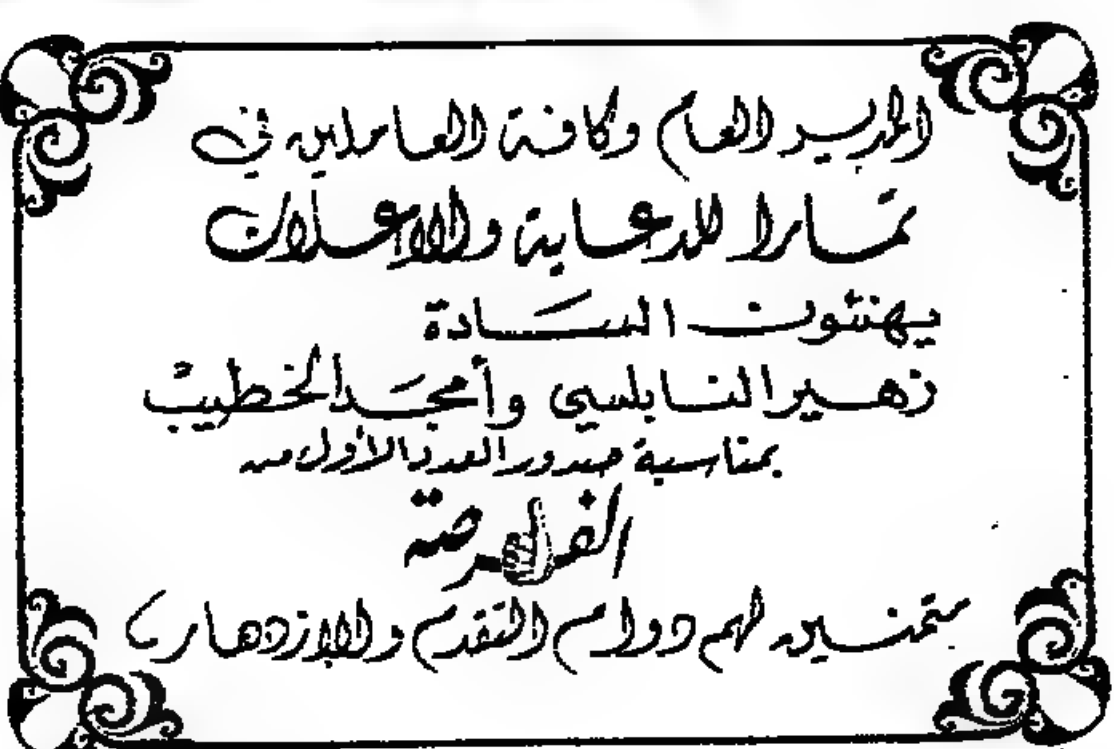 المدير العام وكافة العاملين في
تمارا للدعاية والاعلان
يهنئون السادة
زهير النابلسي وأمجد الخطيب
بمناسبة صدور العدد الأول من
الفرصة
متمنين لهم دوام التقدم والازدهار